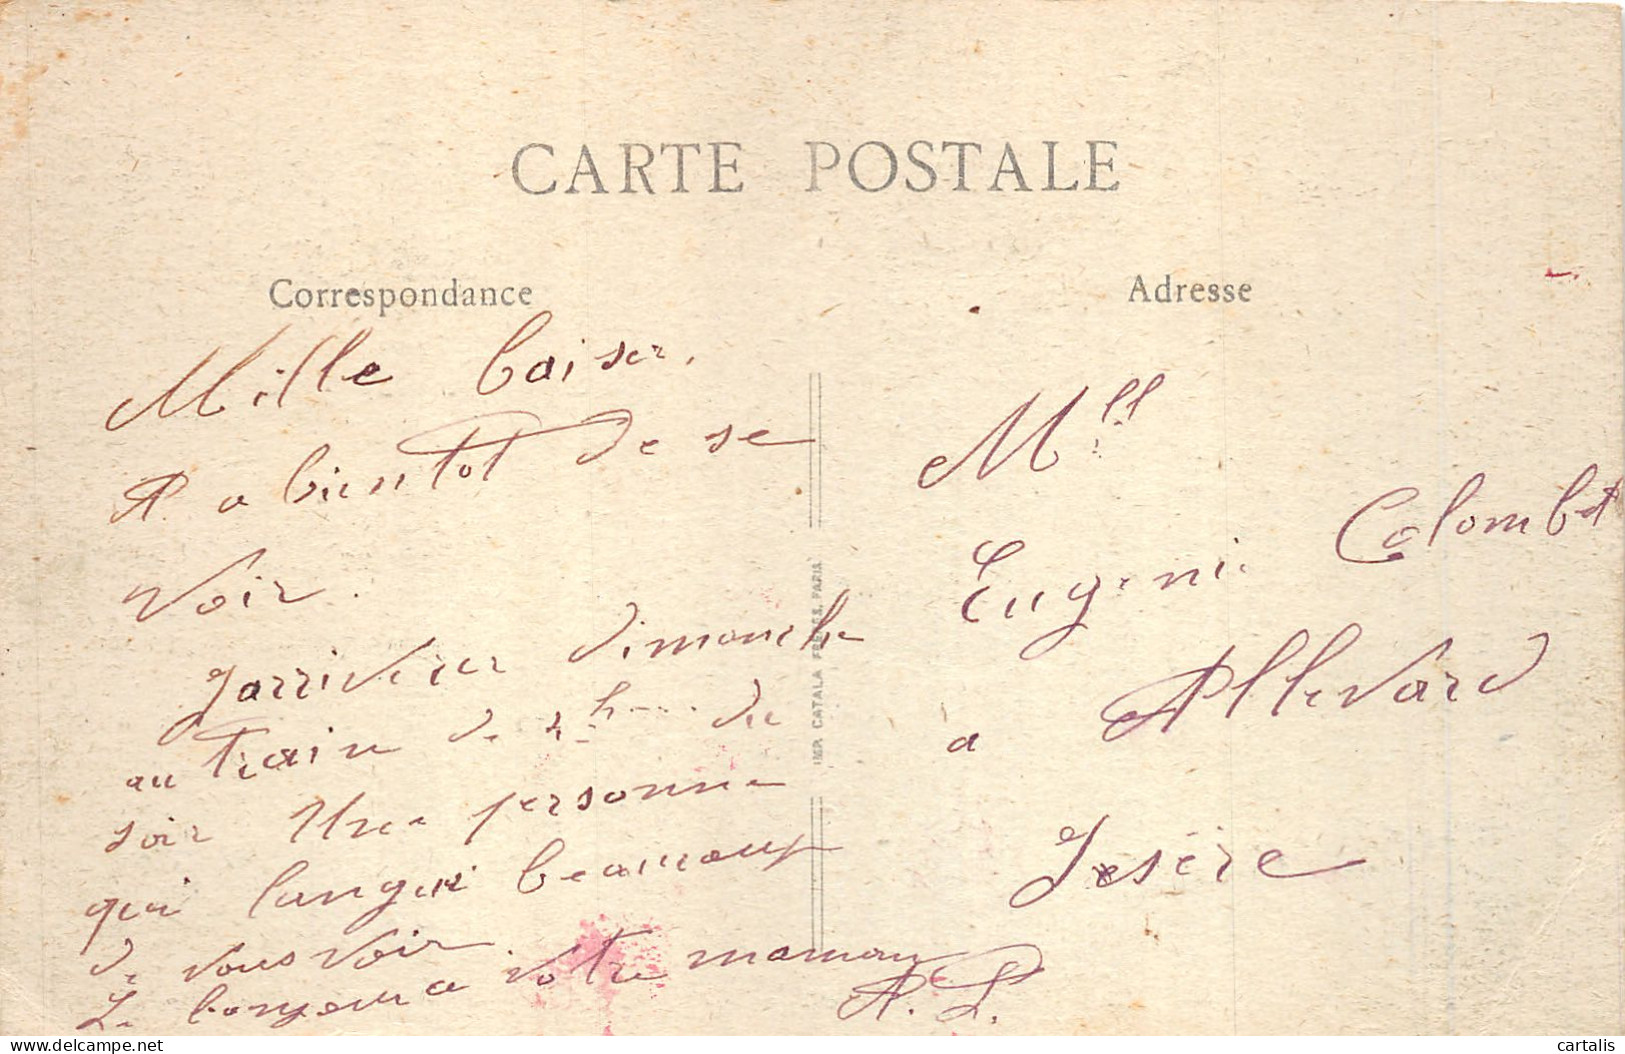 CARTE POSTALE
Correspondance
Mille baiser.
A. a bientot de se
voir.
Jarriverer dimanche
au train de 4h du
soir Une personne
qui langui beaucoup
de vous voir
Le bonjour a votre maman
A. L.
IMP. CATALA FRERES, PARIS
Adresse
Mlle
Eugenie Colombet
a Allevard
Isère
cartalis
delcampe.net